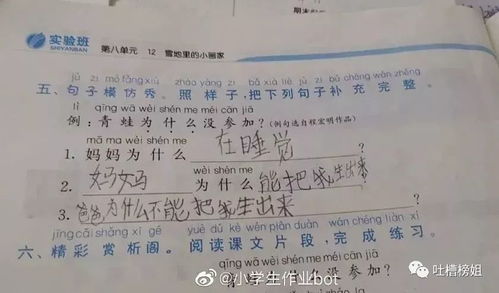 期末
实验班
SHIYANBAN
第八单元 12 雪地里的小画家
jù zi mó fǎng xiù zhào yàng zi bǎ xià liè jù zi bǔ chōng wán zhěng
五、句子模仿秀。照样子,把下列句子补充完整。
lì qīng wā wèi shén me méi cān jiā
例:青蛙为什么没参加?(例句选自程宏明作品)
mā ma wèi shén me
1. 妈妈为什么 在睡觉
wèi shén me
2. 妈妈 为什么 能把我生出来
3. 爸爸为什么不能把我生出来
jīng cǎi shǎng xī gé yuè dú kè wén piàn duàn wán chéng liàn xí
六、精彩赏析阁。阅读课文片段,完成练习。
qīng wā wèi shén me méi cān jiā
青蛙为什么没参加?
@小学生作业bot
吐槽榜姐